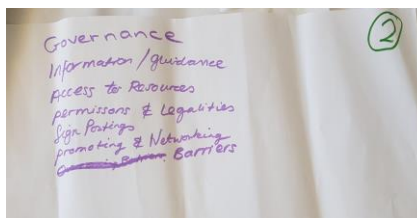 Governance
Information/guidance
Access to Resources
permissons & Legalities
Sign Postings
promoting & Networking
Barriers
2